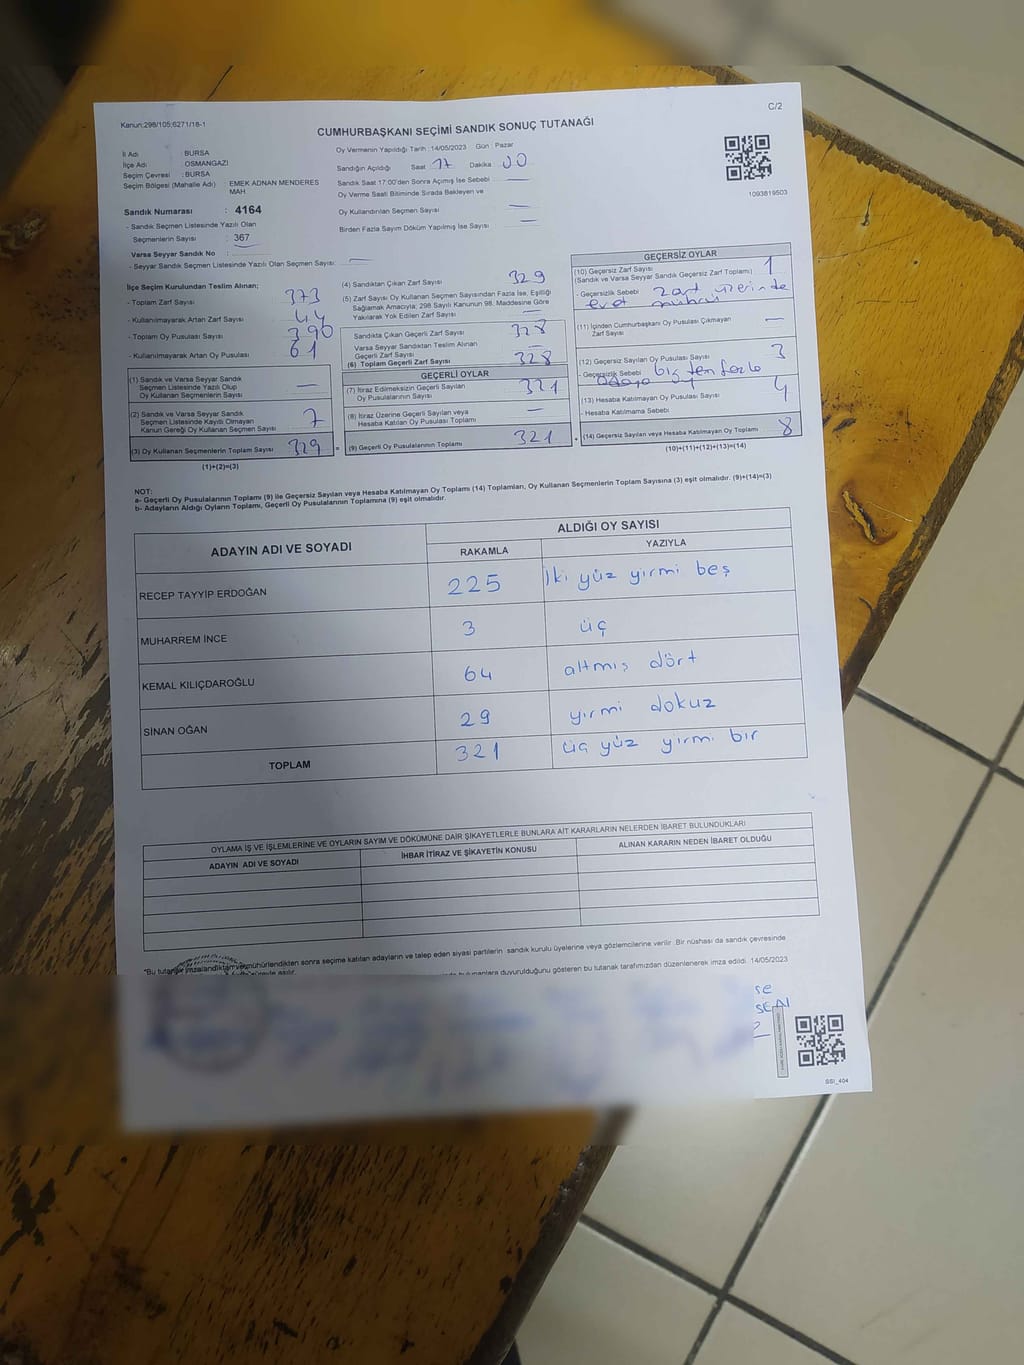 Kanun:298/105;6271/18-1
C/2
CUMHURBAŞKANI SEÇİMİ SANDIK SONUÇ TUTANAĞI
İl Adı : BURSA
İlçe Adı : OSMANGAZİ
Seçim Çevresi : BURSA
Seçim Bölgesi (Mahalle Adı) : EMEK ADNAN MENDERES
MAH
Sandık Numarası : 4164
- Sandık Seçmen Listesinde Yazılı Olan
Seçmenlerin Sayısı : 367
Varsa Seyyar Sandık No :
- Seyyar Sandık Seçmen Listesinde Yazılı Olan Seçmen Sayısı: —
Oy Vermenin Yapıldığı Tarih :14/05/2023 Gün : Pazar
Sandığın Açıldığı Saat 17 Dakika 00
Sandık Saat 17:00'den Sonra Açımış İse Sebebi —
Oy Verme Saati Bitiminde Sırada Bekleyen ve
Oy Kullandırılan Seçmen Sayısı —
Birden Fazla Sayım Döküm Yapılmış İse Sayısı —
1093819503
İlçe Seçim Kurulundan Teslim Alınan;
- Toplam Zarf Sayısı 373
- Kullanılmayarak Artan Zarf Sayısı 44
- Toplam Oy Pusulası Sayısı 390
- Kullanılmayarak Artan Oy Pusulası 61
(1) Sandık ve Varsa Seyyar Sandık
Seçmen Listesinde Yazılı Olup
Oy Kullanan Seçmenlerin Sayısı —
(2) Sandık ve Varsa Seyyar Sandık
Seçmen Listesinde Kayıtlı Olmayan
Kanun Gereği Oy Kullanan Seçmen Sayısı 7
(3) Oy Kullanan Seçmenlerin Toplam Sayısı 329
(1)+(2)=(3)
(4) Sandıktan Çıkan Zarf Sayısı 329
(5) Zarf Sayısı Oy Kullanan Seçmen Sayısından Fazla ise, Eşitliği
Sağlamak Amacıyla; 298 Sayılı Kanunun 98. Maddesine Göre
Yakılarak Yok Edilen Zarf Sayısı —
Sandıkta Çıkan Geçerli Zarf Sayısı 328
Varsa Seyyar Sandıktan Teslim Alınan
Geçerli Zarf Sayısı —
(6) Toplam Geçerli Zarf Sayısı 328
GEÇERLİ OYLAR
(7) İtiraz Edilmeksizin Geçerli Sayılan
Oy Pusulalarının Sayısı 321
(8) İtiraz Üzerine Geçerli Sayılan veya
Hesaba Katılan Oy Pusulası Toplamı —
= (9) Geçerli Oy Pusulalarının Toplamı 321
GEÇERSİZ OYLAR
(10) Geçersiz Zarf Sayısı 1
(Sandık ve Varsa Seyyar Sandık Geçersiz Zarf Toplamı)
- Geçersizlik Sebebi zarf üzerinde
evet mührü
(11) İçinden Cumhurbaşkanı Oy Pusulası Çıkmayan
Zarf Sayısı —
(12) Geçersiz Sayılan Oy Pusulası Sayısı 3
- Geçersizlik Sebebi birden fazla
adaya oy
(13) Hesaba Katılmayan Oy Pusulası Sayısı 4
- Hesaba Katılmama Sebebi
+ (14) Geçersiz Sayılan veya Hesaba Katılmayan Oy Toplamı 8
(10)+(11)+(12)+(13)=(14)
NOT:
a- Geçerli Oy Pusulalarının Toplamı (9) ile Geçersiz Sayılan veya Hesaba Katılmayan Oy Toplamı (14) Toplamları, Oy Kullanan Seçmenlerin Toplam Sayısına (3) eşit olmalıdır. (9)+(14)=(3)
b- Adayların Aldığı Oyların Toplamı, Geçerli Oy Pusulalarının Toplamına (9) eşit olmalıdır.
ADAYIN ADI VE SOYADI
ALDIĞI OY SAYISI
RAKAMLA YAZIYLA
RECEP TAYYİP ERDOĞAN 225 İki yüz yirmi beş
MUHARREM İNCE 3 üç
KEMAL KILIÇDAROĞLU 64 altmış dört
SİNAN OĞAN 29 yirmi dokuz
TOPLAM 321 üç yüz yirmi bir
OYLAMA İŞ VE İŞLEMLERİNE VE OYLARIN SAYIM VE DÖKÜMÜNE DAİR ŞİKAYETLERLE BUNLARA AİT KARARLARIN NELERDEN İBARET BULUNDUKLARI
ADAYIN ADI VE SOYADI İHBAR İTİRAZ VE ŞİKAYETİN KONUSU ALINAN KARARIN NEDEN İBARET OLDUĞU
*Bu tutanak imzalandıktan ve mühürlendikten sonra seçime katılan adayların ve talep eden siyasi partilerin sandık kurulu üyelerine veya gözlemcilerine verilir. Bir nüshası da sandık çevresinde
süreyle asılır. bulunanlara duyurulduğunu gösteren bu tutanak tarafımızdan düzenlenerek imza edildi. 14/05/2023
SSI_404